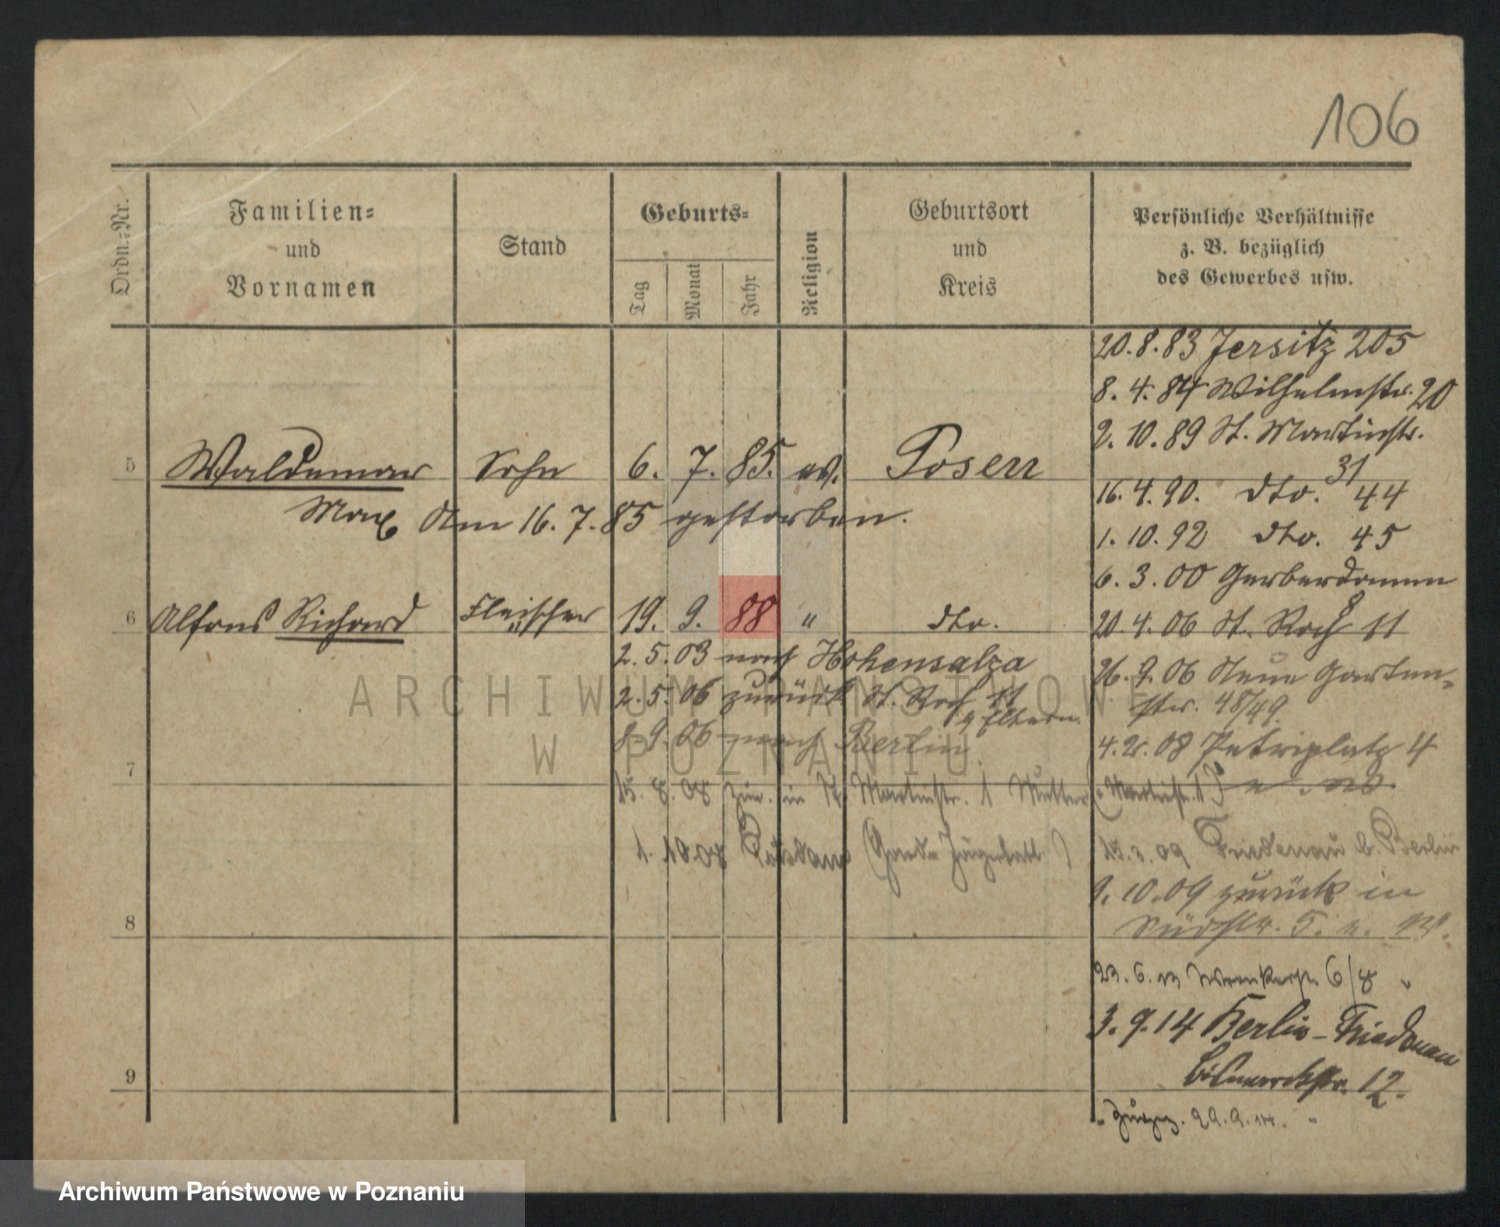 106
Ordn.-Nr.
Familien-
und
Vornamen
Stand
Geburts-
Tag
Monat
Jahr
Religion
Geburtsort
und
Kreis
Persönliche Verhältnisse
z. B. bezüglich
des Gewerbes usw.
5
Waldemar Sohn 6. 7. 85. ev. Posen
Max Am 16. 7. 85 gestorben.
6
Alfons Richard Fleischer 19. 9. 88 " dto.
2. 5. 03 nach Hohensalza
2. 5. 06 zurück St. Roch 11
z. Eltern.
8. 9. 06 nach Berlin
7
15. 8. 08 in St. Martinstr. 1 Mutter
1. 10 08 Potsdam (Garde Jägerbatl.)
8
9
20. 8. 83 Jersitz 205
8. 4. 84 Wilhelmstr. 20
2. 10. 89 St. Martinstr.
31
16. 4. 90. dto. 44
1. 10. 92 dto. 45
6. 3. 00 Gerberdamm
8
20. 4. 06 St. Roch 11
26. 9. 06 Neue Garten-
str. 48/49.
4. 2. 08 Petriplatz 4
Martinstr.
15. 3. 09 Friedenau b. Berlin
9. 10. 09 zurück in
Südstr. 5.
23. 6. 13 6/8
3. 9. 14 Berlin-Friedenau
Bismarckstr. 12.
29. 9. 14.
ARCHIWUM PAŃSTWOWE
W POZNANIU
Archiwum Państwowe w Poznaniu